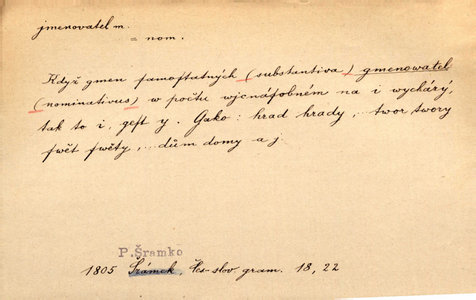 jmenovatel m.
= nom.
Když gmen samostatných (substantiva) gmenowatel
(nominativus) w počtu wjcnásobném na i wychárý,
tak to i, gest y. Gako: hrad hrady, ... twor, twory
swět swěty, ... dům domy a j.
P. Šramko
1805 Šrámek, Čes-slov gram. 18, 22